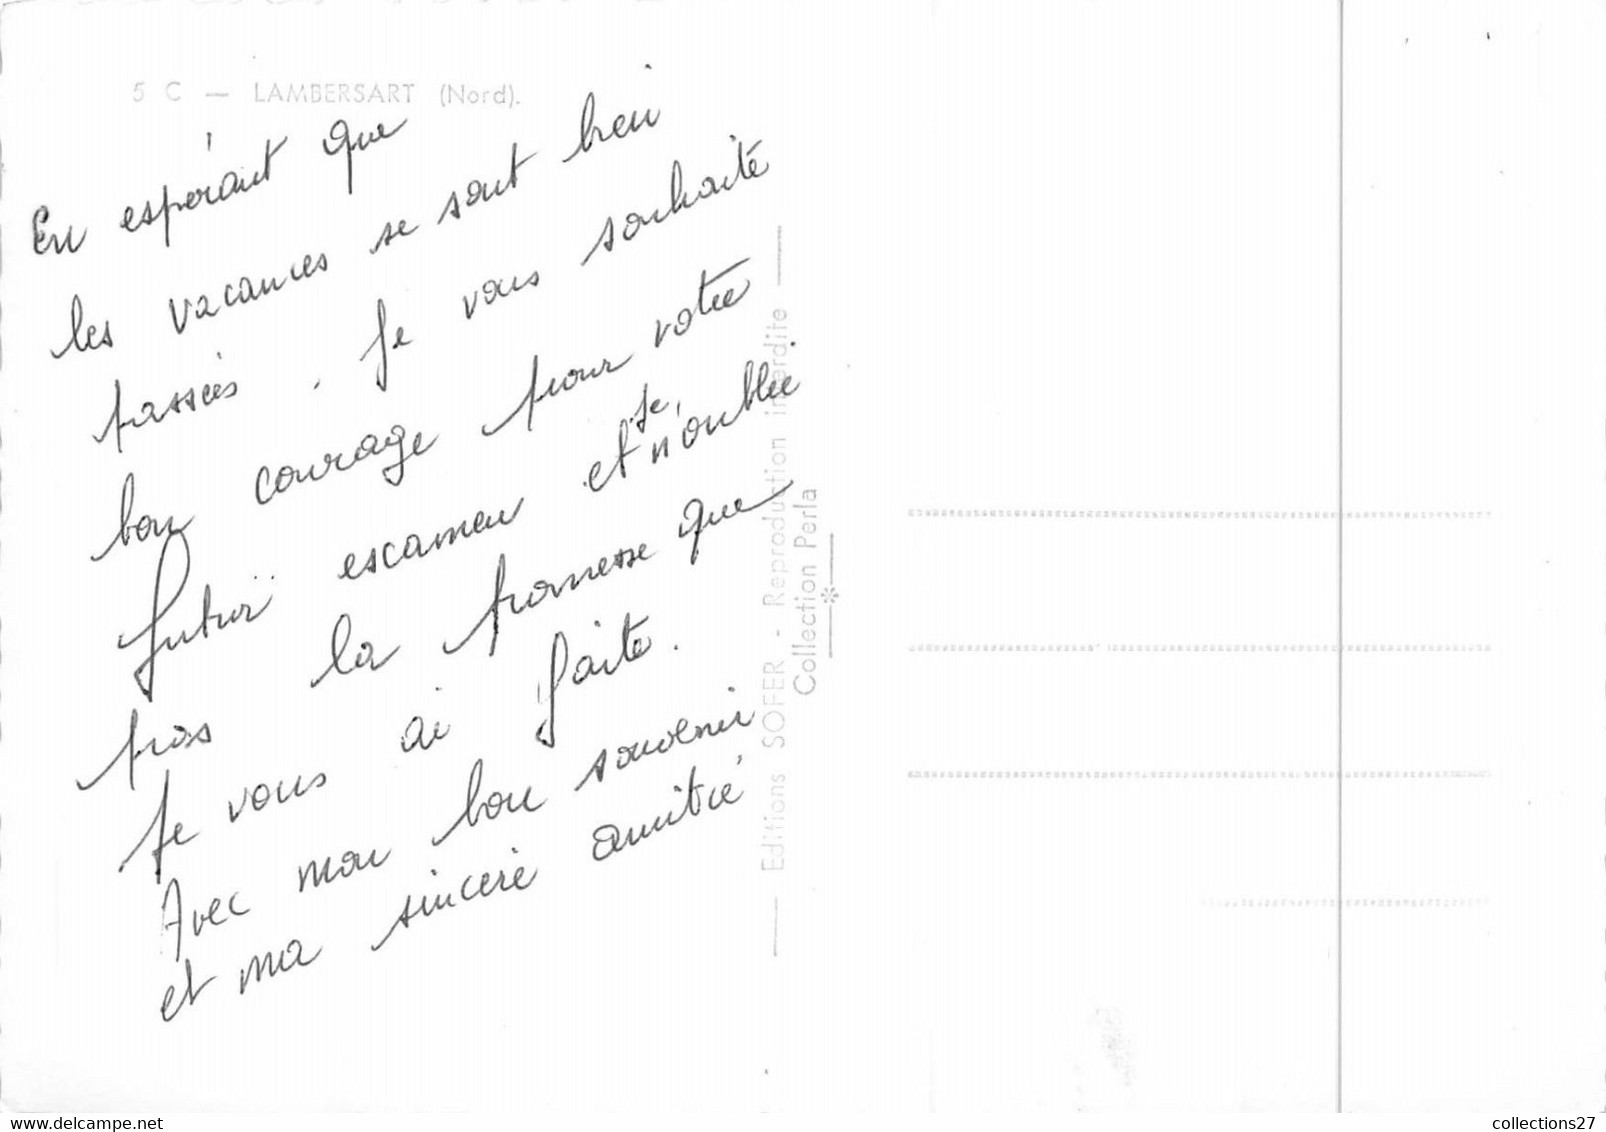 5 C — LAMBERSART (Nord).
En espérant que
les vacances se sont bien
passées. Je vous souhaite
bon courage pour votre
futur escamen et je n'oublie
pas la promesse que
je vous ai faite.
Avec mon bon souvenir
et ma sincère amitié
Editions SOFER - Reproduction interdite
Collection Perla
collections27